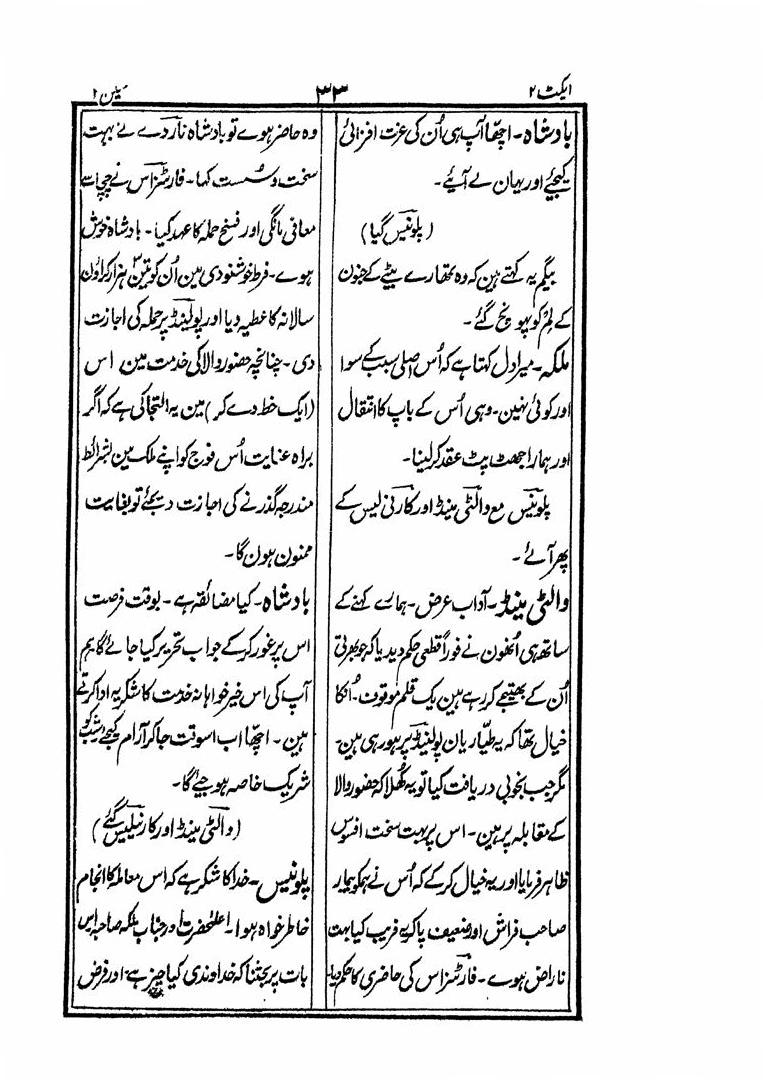 ایکٹ ۲
۳۳
سین ۱
بادشاہ۔ اچھا آپ ہی اُن کی عزت افزائی
کیجیے اور یہان لے آیئے۔
(پلونیس گیا)
بیگم یہ کہتے ہین کہ وہ تمھارے بیٹے کے جنون
کے لِم کو پہونچ گئے۔
ملکہ۔ میرا دل کہتا ہے کہ اُس اصلی سبب کے سوا
اور کوئی نہین۔ وہی اُس کے باپ کا انتقال
اور ہمارا جھٹ پٹ عقد کر لینا۔
پلونیس مع والٹی مینڈ اور کارنی لیس کے
پھر آئے۔
والٹی مینڈ۔ آداب عرض۔ ہمارے کہنے کے
ساتھ ہی اُنھون نے فوراً قطعی حکم دیدیا کہ جو بھرتی
اُن کے بھتیجے کر رہے ہین یک قلم موقوف۔ اُنکا
خیال تھا کہ یہ طیاریان پولینڈ پر ہو رہی ہین۔
مگر جب بخوبی دریافت کیا تو یہ کھُلا کہ حضور والا
کے مقابلہ پر ہین۔ اس پر بہت سخت افسوس
ظاہر فرمایا اور یہ خیال کر کے کہ اُس نے ہمکو بیمار
صاحب فراش اور ضعیف پا کر یہ فریب کیا بہت
ناراض ہوے۔ فارٹنزاس کی حاضری کا حکم دیا
وہ حاضر ہوے تو بادشاہ ناردے نے بہت
سخت و سُست کہا۔ فارٹنزاس نے چچا سے
معافی مانگی اور فسخ حملہ کا عہد کیا۔ بادشاہ خوش
ہوے۔ فرط خوشنودی مین اُن کو تین ہزار کراون
سالانہ کا عطیہ دیا اور پولینڈ پر حملہ کی اجازت
دی۔ چنانچہ حضور والا کی خدمت مین اس
(ایک خط دے کر) مین یہ التجا کی ہے کہ اگر
براہ عنایت اُس فوج کو اپنے ملک مین بشرائط
مندرجہ گذرنے کی اجازت دیجئے تو بغایت
ممنون ہون گا۔
بادشاہ۔ کیا مضائقہ ہے۔ بوقت فرصت
اس پر غور کر کے جواب تحریر کیا جائے گا ہم
آپ کی اس خیر خواہانہ خدمت کا شکریہ ادا کرتے
ہین۔ اچھا اب اسوقت جا کر آرام کیجے شب کو
شریک خاصہ ہو جیے گا۔
(والٹی مینڈ اور کارنیلیس گئے)
پلونیس۔ خدا کا شکر ہے کہ اس معاملہ کا انجام
خاطر خواہ ہوا۔ اعلحضرت اور جناب ملکہ صاحبہ اس
بات پر بحثنا کہ خداوندی کیا چیز ہے اور فرض